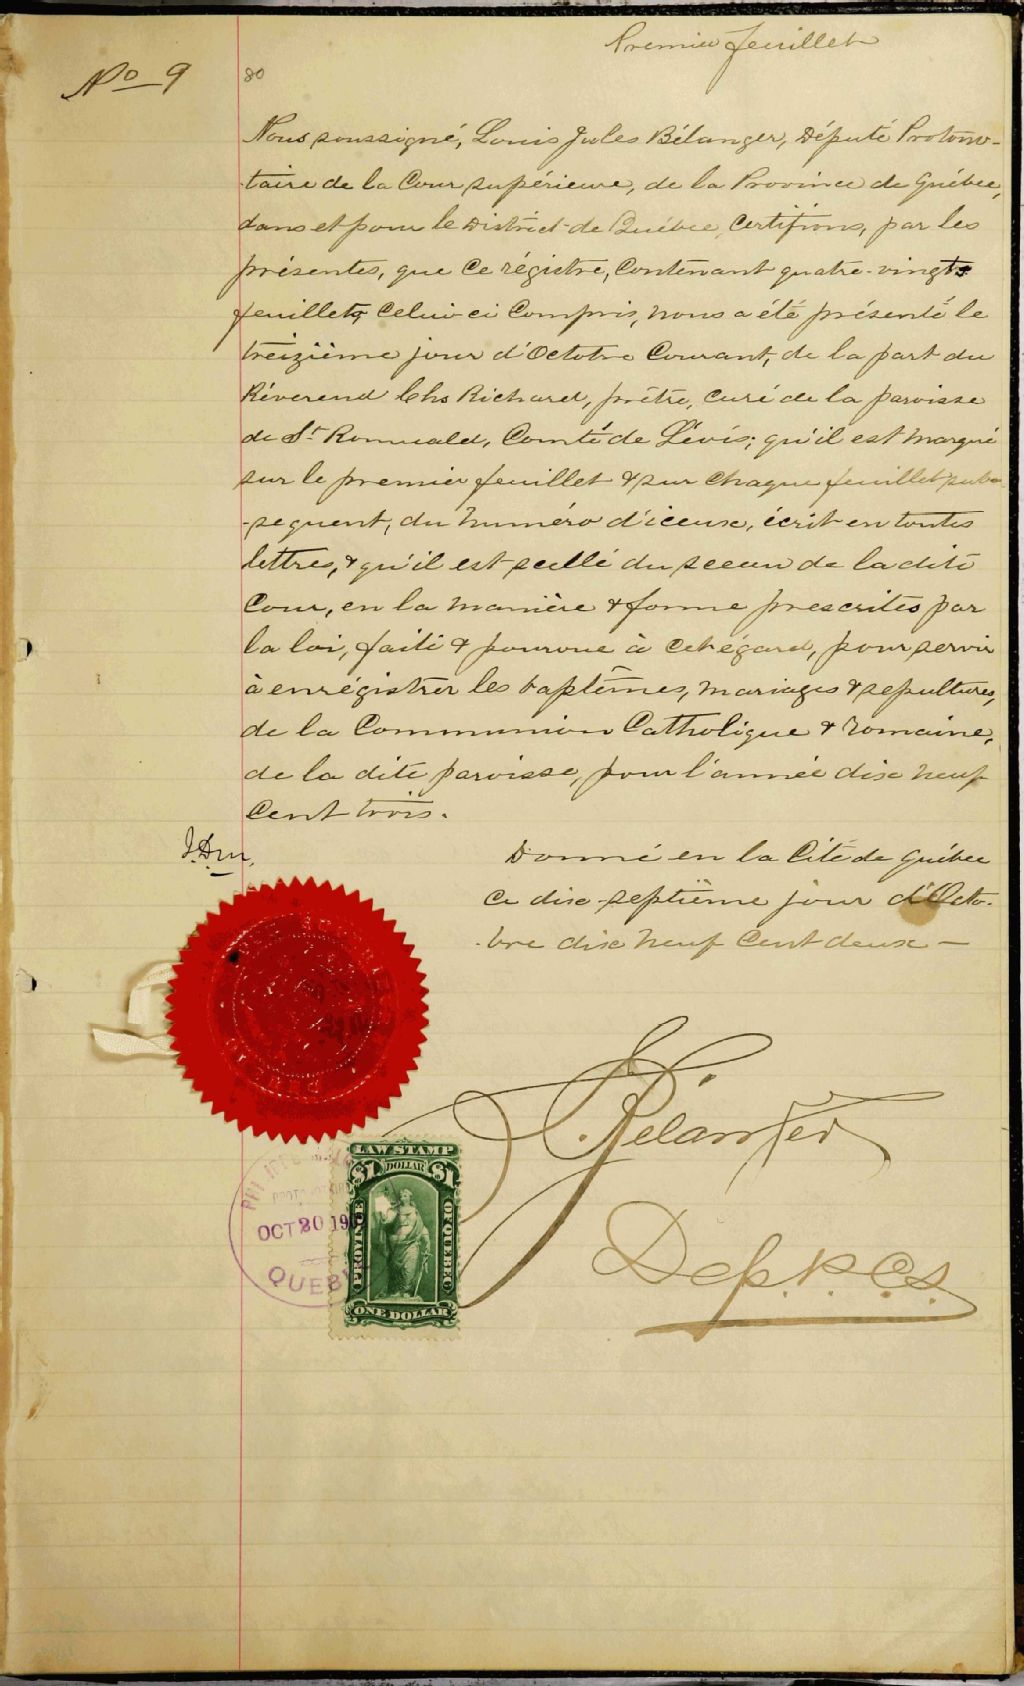 Premier feuillet
No 9
80
Nous soussigné, Louis Jules Bélanger, Député Protono-
taire de la Cour supérieure, de la Province de Québec,
dans et pour le District de Québec, Certifions, par les
présentes, que ce régistre, contenant quatre-vingts
feuillets, celui-ci compris, nous a été présenté le
treizième jour d'Octobre courant, de la part du
Révérend Chs Richard, prêtre, curé de la paroisse
de St Romuald, Comté de Lévis; qu'il est marqué
sur le premier feuillet & sur chaque feuillet sub-
-séquent, du numéro d'iceux, écrit en toutes
lettres, & qu'il est scellé du sceau de la dite
Cour, en la manière & forme prescrites par
la loi, faite & pourvue à cet égard, pour servir
à enrégistrer les baptêmes, mariages & sepultures,
de la Communion Catholique & romaine,
de la dite paroisse, pour l'année dix neuf
Cent trois.
Donné en la Cité de Québec
ce dix-septième jour d'Octo-
-bre dix neuf Cent deux —
Bélanger
Dep. P. C. S.
LAW STAMP
$1 DOLLAR $1
PROVINCE OF QUEBEC
ONE DOLLAR
OCT 20 190
QUEB